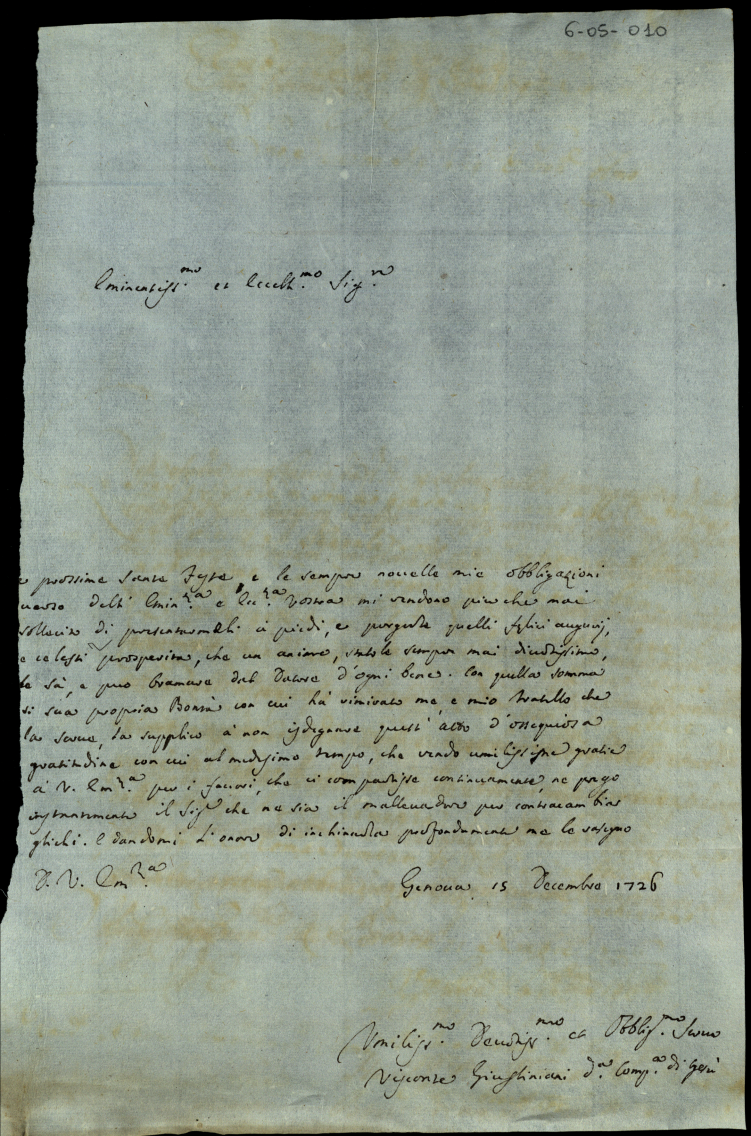 6-05-010
Eminentiss.mo et Eccell.mo Sig.re
e prossime Sante Feste, e le sempre nouelle mie obbligazioni
uerso dell' Emin.za e Ecc.za Vostra mi rendono piu che mai
sollecito di presentarmeli à piedi, e porgerle quelli felici augurij,
e celesti prosperità, che un animo, statole sempre mai diuotissimo,
le sà, e può bramare dal Datore d'ogni bene. Con quella somma
di sua propria Bontà con cui hà rimirato me, e mio Fratello che
la serue, La supplico à non isdegnare quest' atto d'ossequiosa
gratitudine con cui al medesimo tempo, che rendo umilissime gratie
à V. Em.za per i fauori, che ci compartisce continuamente, ne prego
instantemente il Sig.re che ne sia il malleuadore per contracambiar
glieli. E dandomi L'onore di inchinarla profondamente me le rasegno
D. V. Em.za
Genoua 15 Decembre 1726
Vmiliss.mo Deuotiss.mo et Obblig.mo Seruo
Visconte Giustiniani d.a Comp.a di Gesù